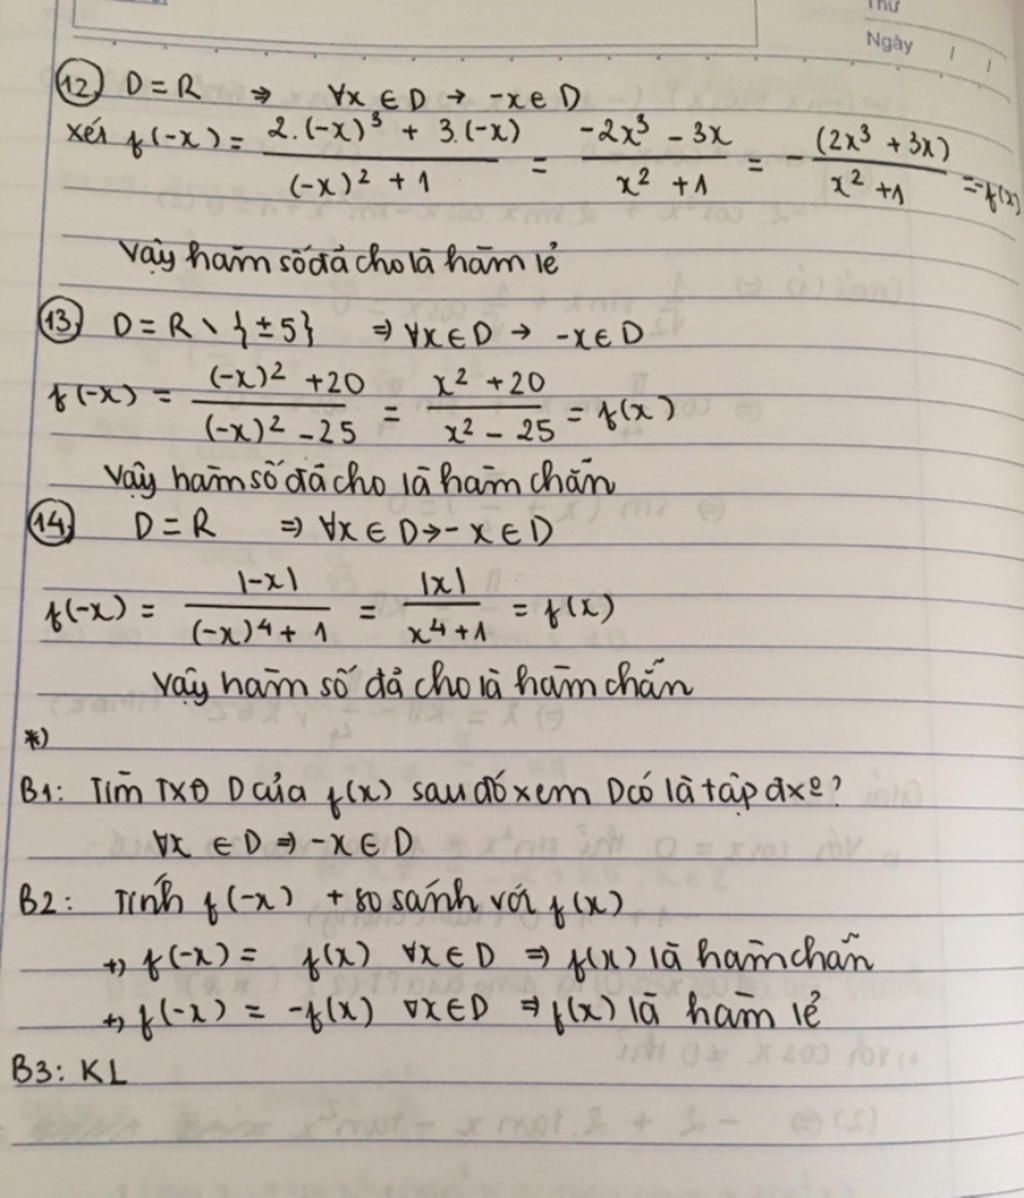 Thứ
Ngày / /
12) D = R ⇒ ∀x ∈ D → -x ∈ D
xét f(-x) = (2.(-x)³ + 3.(-x))/((-x)² + 1) = (-2x³ - 3x)/(x² + 1) = - (2x³ + 3x)/(x² + 1) = -f(x)
Vậy hàm số đã cho là hàm lẻ
13) D = R \ {±5} ⇒ ∀x ∈ D → -x ∈ D
f(-x) = ((-x)² + 20)/((-x)² - 25) = (x² + 20)/(x² - 25) = f(x)
Vậy hàm số đã cho là hàm chẵn
14) D = R ⇒ ∀x ∈ D → -x ∈ D
f(-x) = |-x|/((-x)⁴ + 1) = |x|/(x⁴ + 1) = f(x)
Vậy hàm số đã cho là hàm chẵn
*)
B1: Tìm TXĐ D của f(x) sau đó xem D có là tập đx º?
∀x ∈ D ⇒ -x ∈ D
B2: Tính f(-x) + so sánh với f(x)
+) f(-x) = f(x) ∀x ∈ D ⇒ f(x) là hàm chẵn
+) f(-x) = -f(x) ∀x ∈ D ⇒ f(x) là hàm lẻ
B3: KL